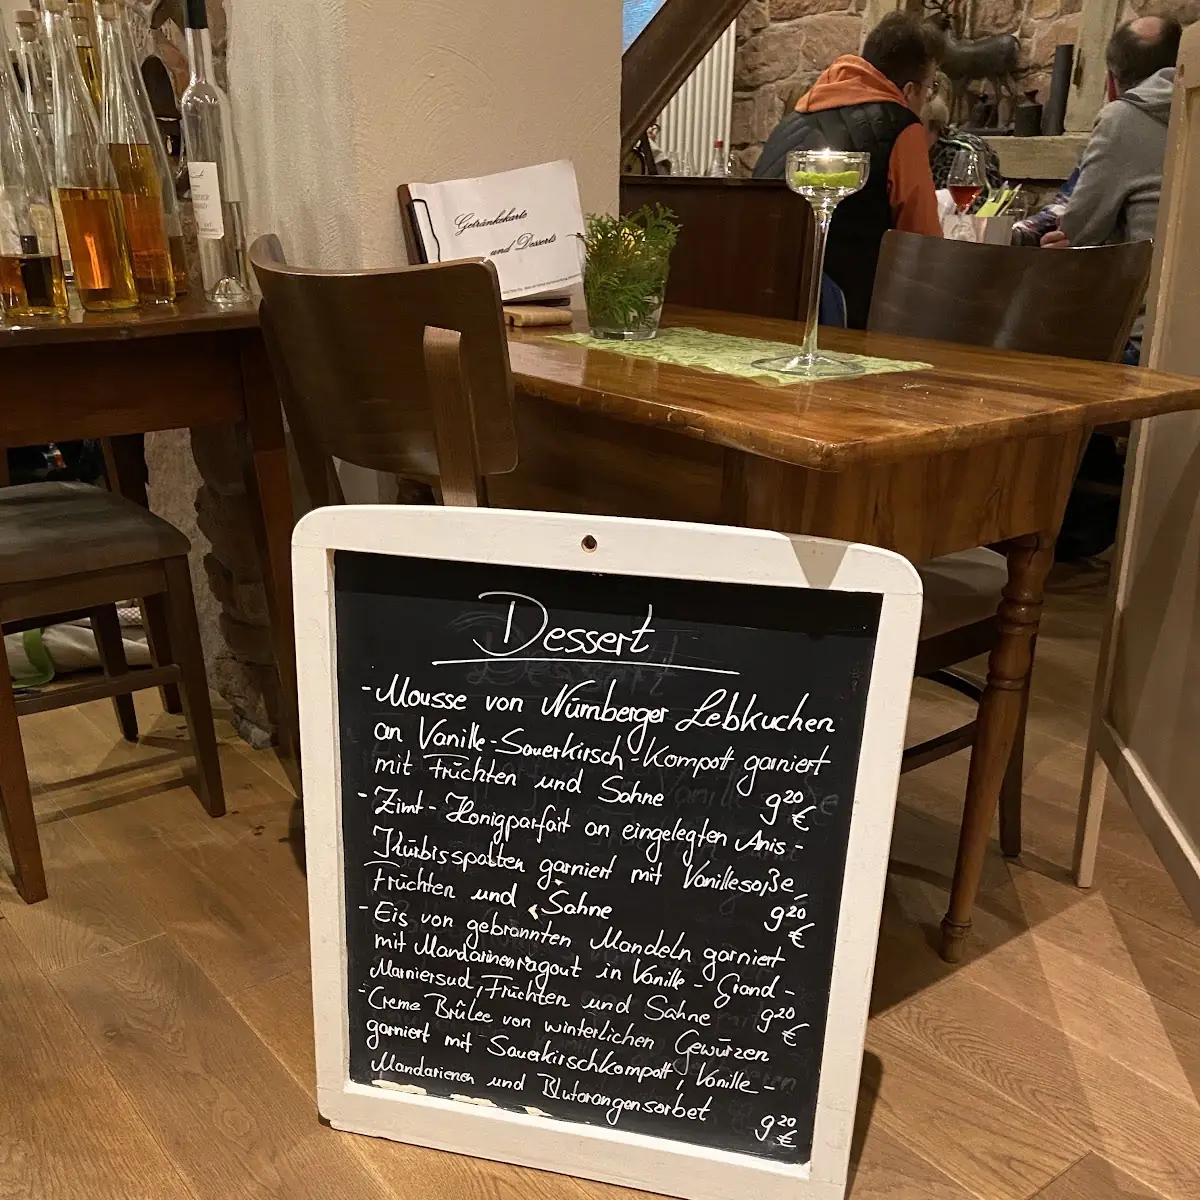 Getränkekarte
und Desserts
Dessert
- Mousse von Nürnberger Lebkuchen
an Vanille-Sauerkirsch-Kompott garniert
mit Früchten und Sahne 9,20 €
- Zimt-Honigparfait an eingelegten Anis-
Kürbisspalten garniert mit Vanillesoße,
Früchten und Sahne 9,20 €
- Eis von gebrannten Mandeln garniert
mit Mandarinenragout in Vanille-Grand-
Marniersud, Früchten und Sahne 9,20 €
- Creme Brûlee von winterlichen Gewürzen
garniert mit Sauerkirschkompott, Vanille-
Mandarienen und Blutorangensorbet 9,20 €